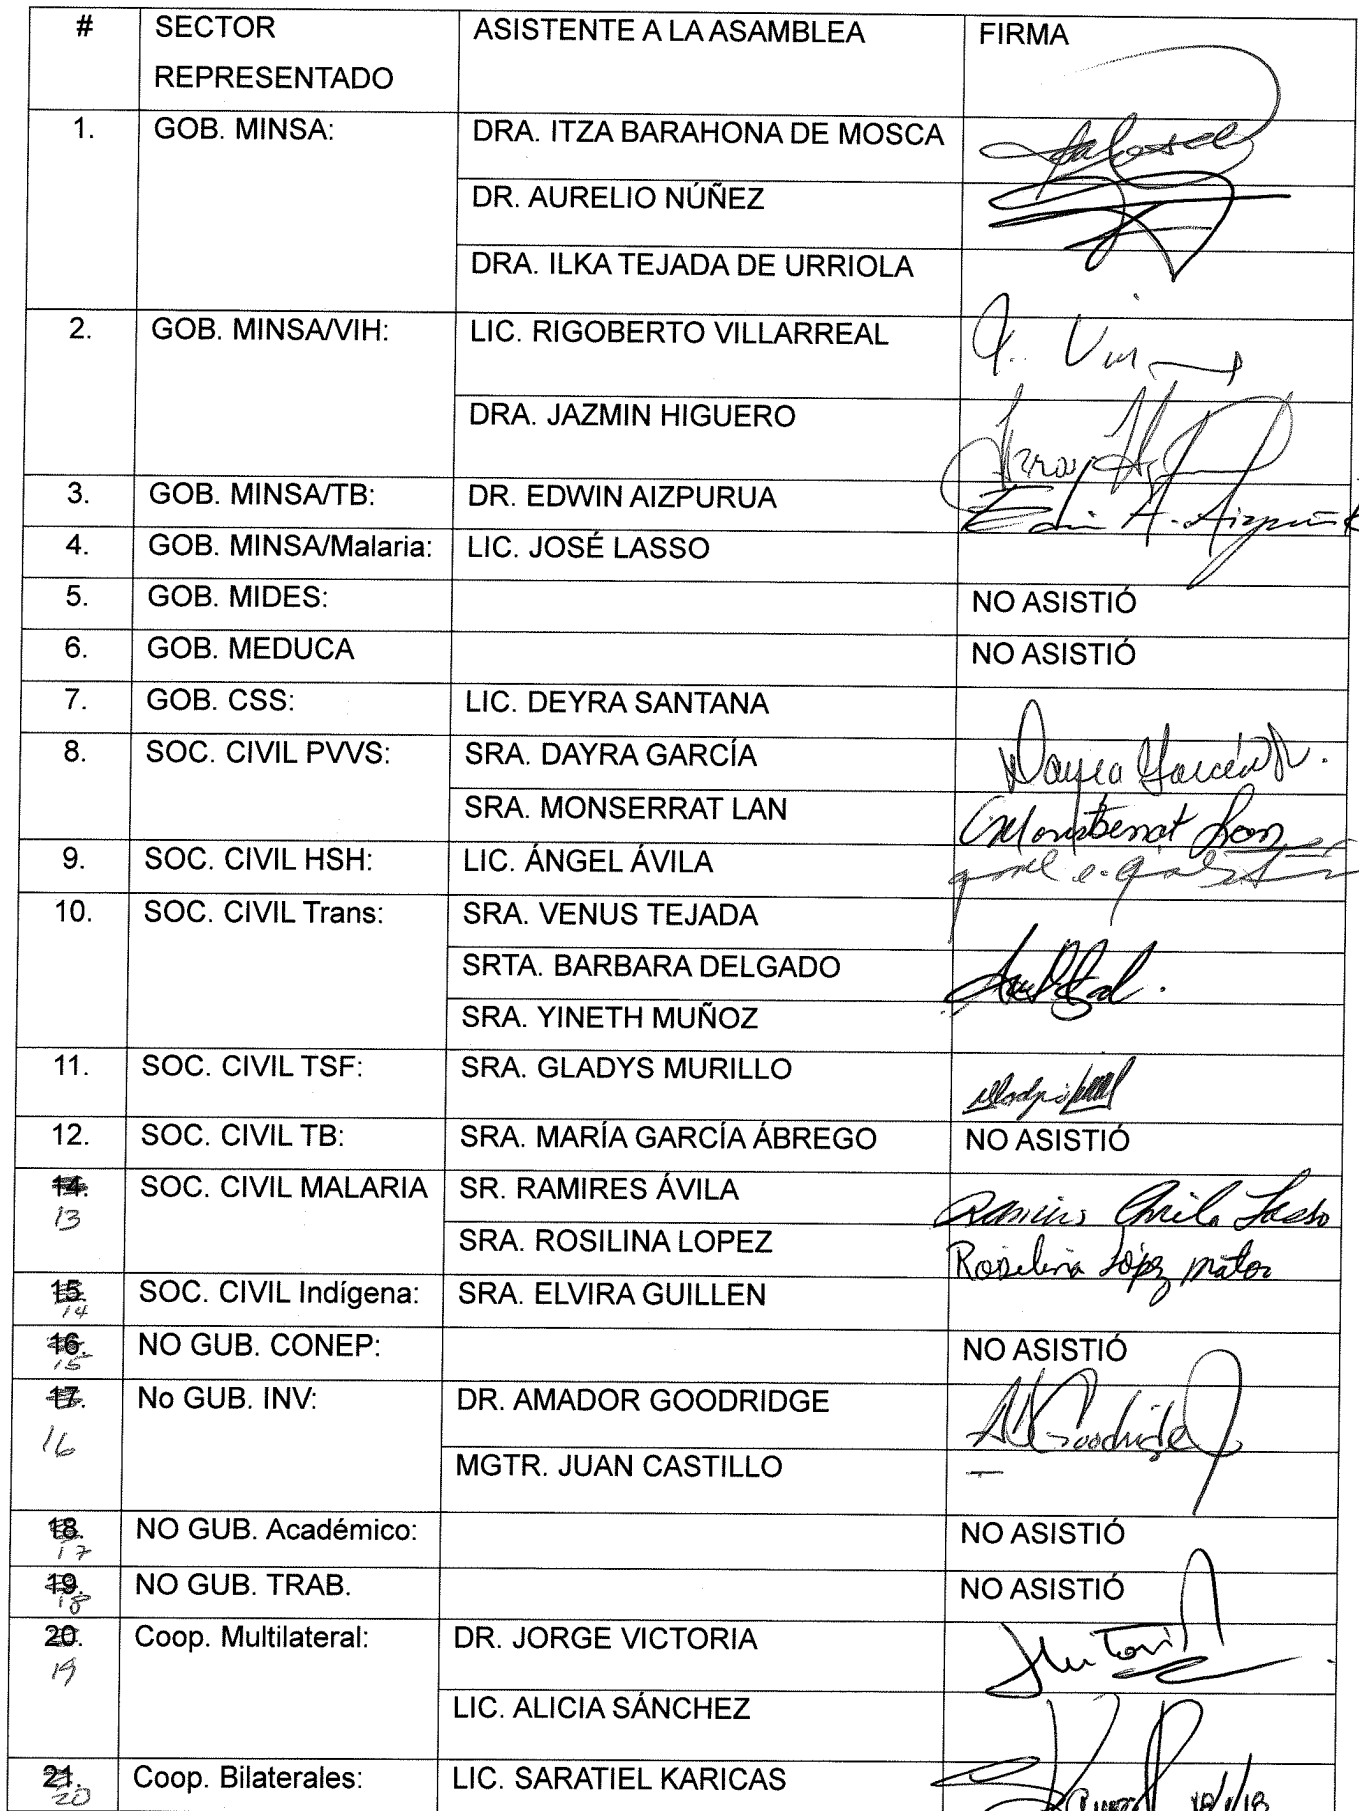 # SECTOR REPRESENTADO ASISTENTE A LA ASAMBLEA FIRMA
1. GOB. MINSA: DRA. ITZA BARAHONA DE MOSCA
DR. AURELIO NÚÑEZ
DRA. ILKA TEJADA DE URRIOLA
2. GOB. MINSA/VIH: LIC. RIGOBERTO VILLARREAL
DRA. JAZMIN HIGUERO
3. GOB. MINSA/TB: DR. EDWIN AIZPURUA Edwin A. Aizpurúa
4. GOB. MINSA/Malaria: LIC. JOSÉ LASSO
5. GOB. MIDES: NO ASISTIÓ
6. GOB. MEDUCA NO ASISTIÓ
7. GOB. CSS: LIC. DEYRA SANTANA
8. SOC. CIVIL PVVS: SRA. DAYRA GARCÍA Dayra García R.
SRA. MONSERRAT LAN Montserrat Lan
9. SOC. CIVIL HSH: LIC. ÁNGEL ÁVILA
10. SOC. CIVIL Trans: SRA. VENUS TEJADA
SRTA. BARBARA DELGADO
SRA. YINETH MUÑOZ
11. SOC. CIVIL TSF: SRA. GLADYS MURILLO
12. SOC. CIVIL TB: SRA. MARÍA GARCÍA ÁBREGO NO ASISTIÓ
14. 13 SOC. CIVIL MALARIA SR. RAMIRES ÁVILA Ramires Avila Lasso
SRA. ROSILINA LOPEZ Rosilina López mator
15. 14 SOC. CIVIL Indígena: SRA. ELVIRA GUILLEN
16. 15 NO GUB. CONEP: NO ASISTIÓ
17. 16 No GUB. INV: DR. AMADOR GOODRIDGE AGoodridge
MGTR. JUAN CASTILLO —
18. 17 NO GUB. Académico: NO ASISTIÓ
19. 18 NO GUB. TRAB. NO ASISTIÓ
20. 19 Coop. Multilateral: DR. JORGE VICTORIA
LIC. ALICIA SÁNCHEZ
21. 20 Coop. Bilaterales: LIC. SARATIEL KARICAS